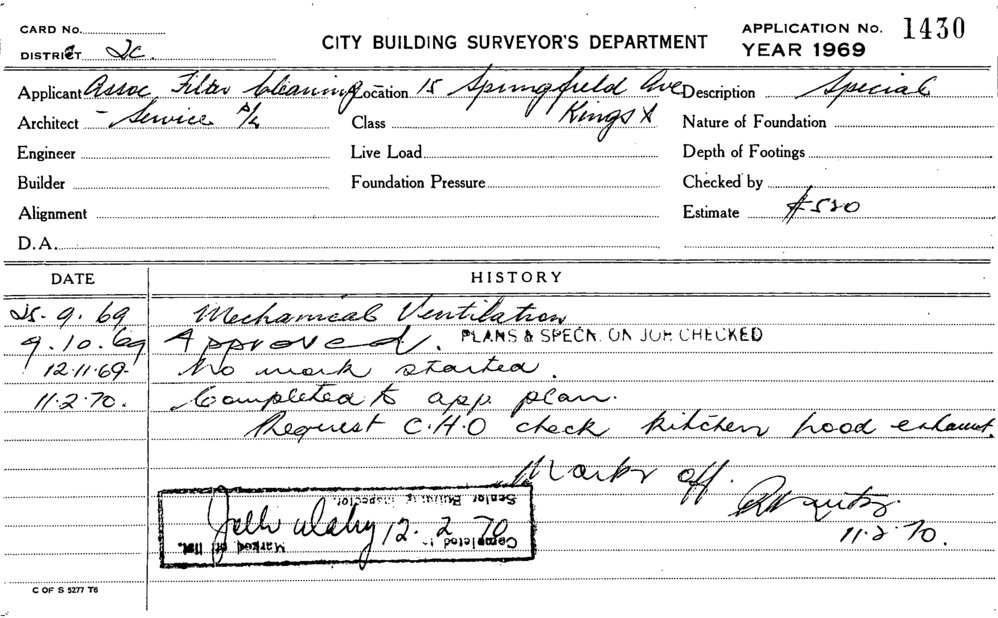 CARD No.
DISTRICT 2c.
CITY BUILDING SURVEYOR'S DEPARTMENT
APPLICATION No. 1430
YEAR 1969
Applicant Assoc. Filter Cleaning Location 15 Springfield Ave Description Special
Architect - Service P/L Class Kings X Nature of Foundation
Engineer Live Load Depth of Footings
Builder Foundation Pressure Checked by
Alignment Estimate $520
D.A.
DATE HISTORY
25-9.69 Mechanical Ventilation
9.10.69 Approved. PLANS & SPECN. ON JOB CHECKED
12.11.69 No work started.
11.2.70. Completed to app. plan.
Request C.H.O check kitchen hood exhaust.
Mark off.
11.2.70.
Senior Building Inspector.
12.2.70
Completed
Marked off list.
C OF S 5277 T6